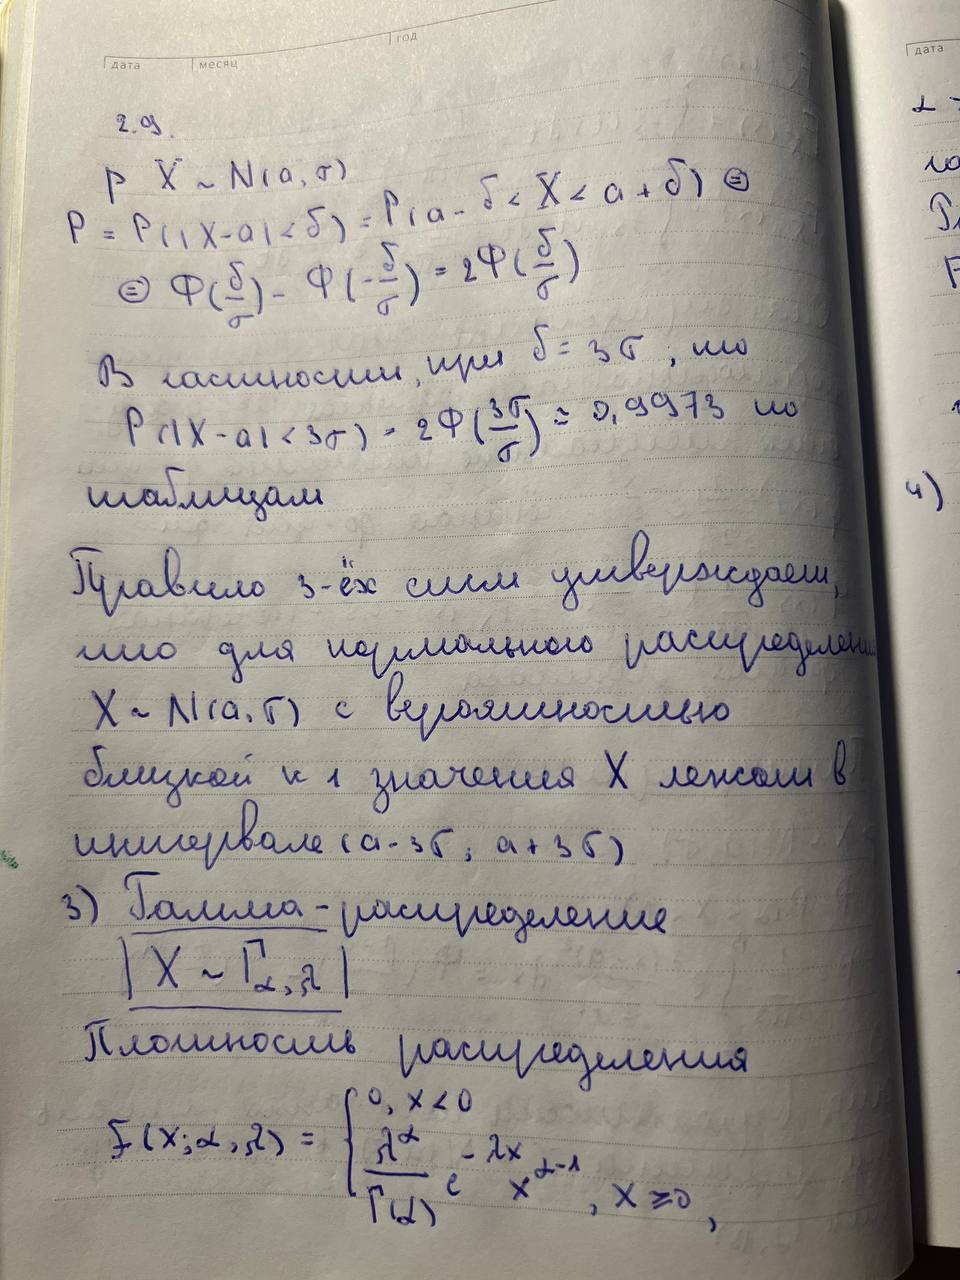 дата месяц год
2.9.
P X ~ N(a, σ)
P = P(|X-a| < δ) = P(a - δ < X < a + δ) ⊜
⊜ Φ(δ/σ) - Φ(-δ/σ) = 2Φ(δ/σ)
В частности, при δ = 3σ, то
P(|X-a| < 3σ) = 2Φ(3σ/σ) ≈ 0,9973 по
таблицам
Правило 3-ёх сигм утверждает,
что для нормального распределения
X ~ N(a, σ) с вероятностью
близкой к 1 значения X лежат в
интервале (a - 3σ; a + 3σ)
3) Гамма-распределение
| X ~ Γα,λ |
Плотность распределения
f(x; α, λ) = { 0, x < 0
λ^α/Γ(α) e^-λx x^α-1, x ≥ 0,
дата
4)